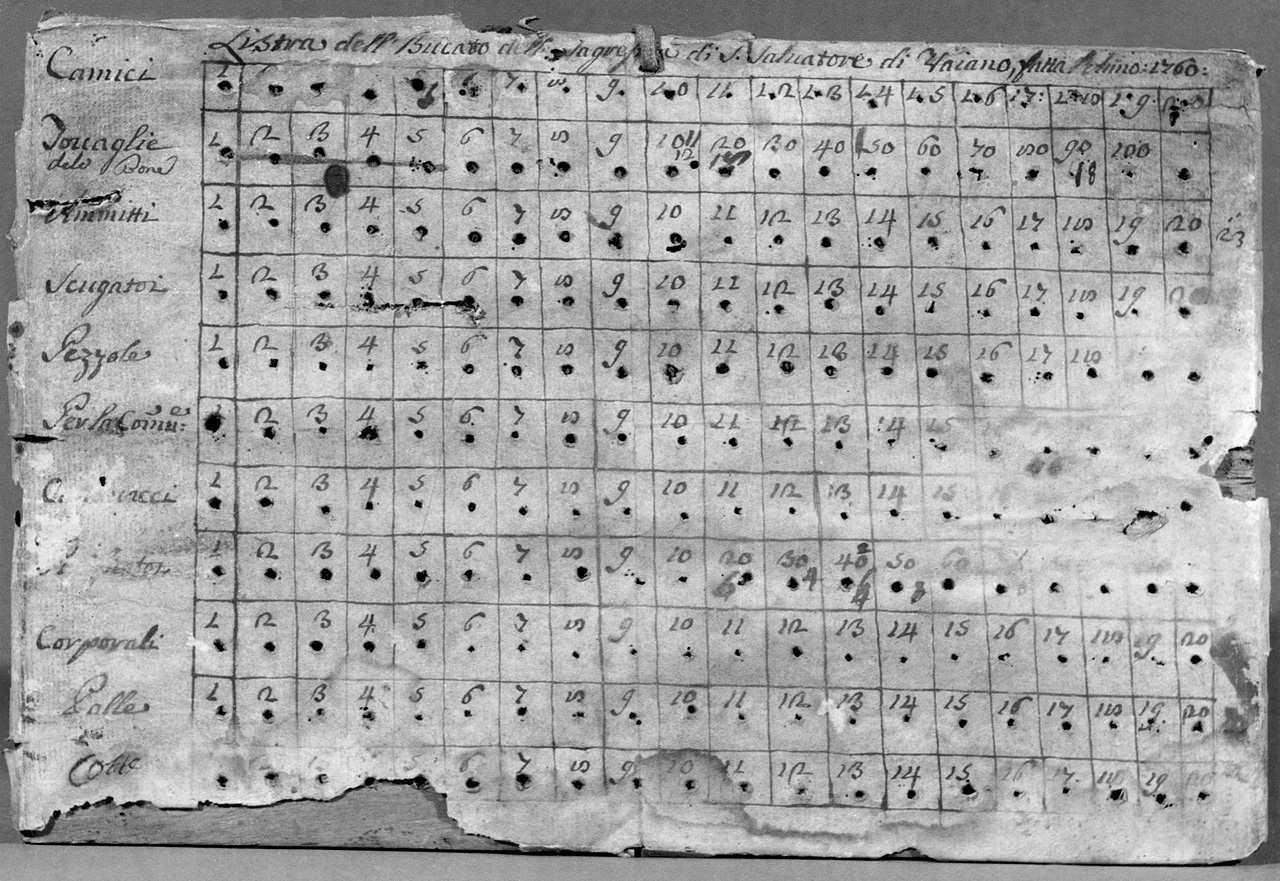 Listra dell' Bucato dell. Sagrestia di S. Salvatore di Vaiano, fatta l'Anno: 1760:
Camici 1 6 7 8 9 10 11 12 13 14 15 16 17 18 19
Touaglie 1 2 3 4 5 6 7 8 9 10 11 20 30 40 50 60 70 80 90 100
12 18
Ammitti 1 2 3 4 5 6 7 8 9 10 11 12 13 14 15 16 17 18 19 20 23
Sciugatoi 1 2 3 4 5 6 7 8 9 10 11 12 13 14 15 16 17 18 19 20
Pezzole 1 2 3 4 5 6 7 8 9 10 11 12 13 14 15 16 17 18
Per la Comu: 1 2 3 4 5 6 7 8 9 10 11 12 13 14 15
1 2 3 4 5 6 7 8 9 10 11 12 13 14 15
1 2 3 4 5 6 7 8 9 10 20 30 40 50 60
6 4 4 8
Corporali 1 2 3 4 5 6 7 8 9 10 11 12 13 14 15 16 17 18 19 20
Palle 1 2 3 4 5 6 7 8 9 10 11 12 13 14 15 16 17 18 19 20
Cotte 6 7 8 9 10 11 12 13 14 15 16 17 18 19